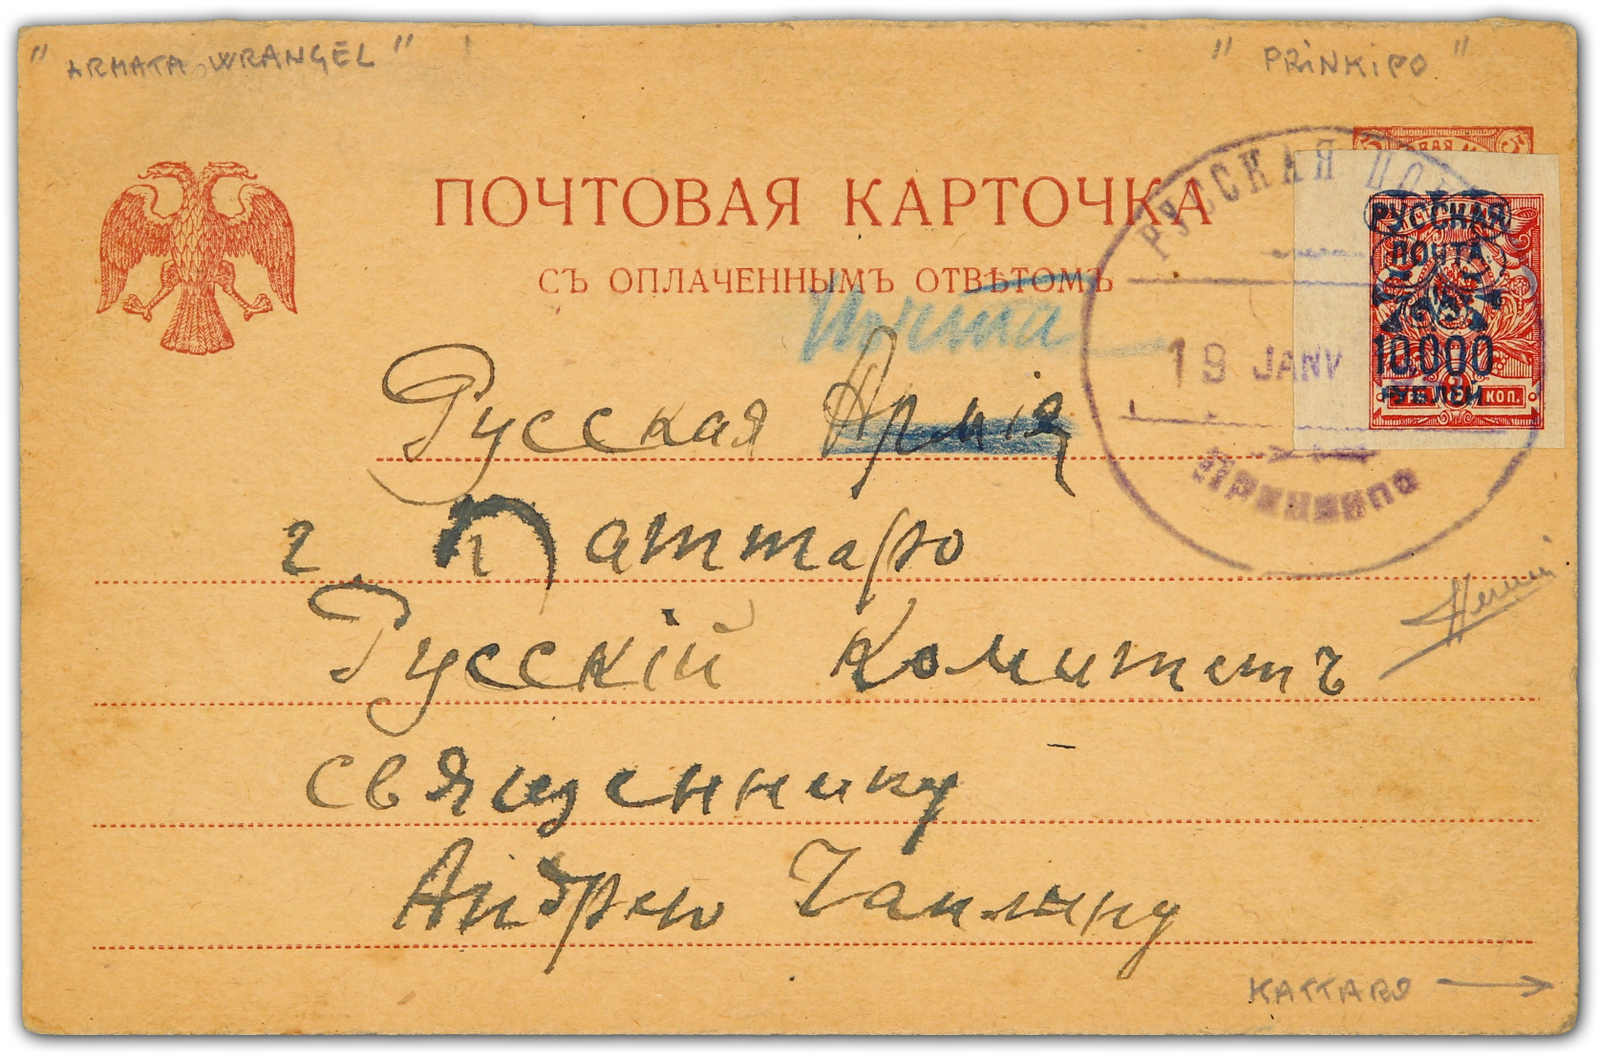 "ARMATA WRANGEL" "PRINKIPO"
ПОЧТОВАЯ КАРТОЧКА
СЪ ОПЛАЧЕННЫМЪ ОТВѢТОМЪ
РУССКАЯ ПОЧ
19 JANV
Принкипо
РУССКАЯ
ПОЧТА
10.000
РУБЛЕЙ
КОП.
Почта
Русская Армія
г. Каттаро
Русскій Комитетъ
священнику
Андрею Чаплину
KATTARO